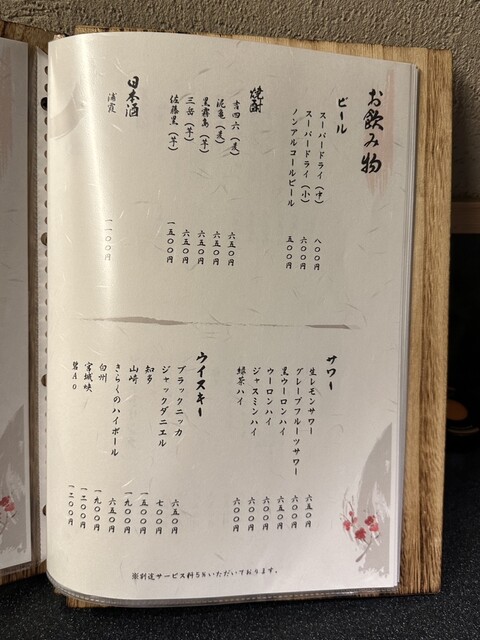 お飲み物
ビール
スーパードライ（中） 八〇〇円
スーパードライ（小） 六〇〇円
ノンアルコールビール 五〇〇円
焼酎
吉四六（麦） 六五〇円
泥亀（麦） 六五〇円
黒霧島（芋） 六五〇円
三岳（芋） 六五〇円
佐藤黒（芋） 一五〇〇円
日本酒
浦霞 一一〇〇円
サワー
生レモンサワー 六五〇円
グレープフルーツサワー 六〇〇円
黒ウーロンハイ 六五〇円
ウーロンハイ 六〇〇円
ジャスミンハイ 六〇〇円
緑茶ハイ 六〇〇円
ウイスキー
ブラックニッカ 六五〇円
ジャックダニエル 七〇〇円
知多 一五〇〇円
山崎 一九〇〇円
きらくのハイボール 六五〇円
白州 一九〇〇円
宮城峡 一二〇〇円
碧Ao 一二〇〇円
※別途サービス料5％いただいております。